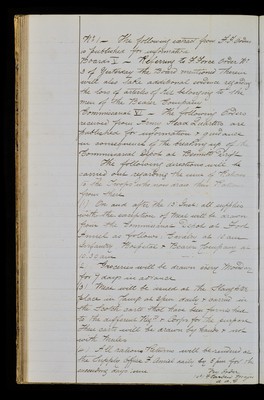 No 1 - The following extract from F. F. Orders
is published for information
Board I - Referring to F Force Order No
3 of Yesterday the Board mentioned therein
will also take additional evidence regarding
the loss of articles of Kit belonging to the
men of the Bearer Company
Commissariat II - The following Orders
received from Home Head Quarters are
published for information & guidance
in consequence of the breaking up of the
Commissariat Depot at
The following directions will be
carried out regarding the issue of Rations
to the Troops who now draw their Rations
from that
(1) On and after the 15 Inst all supplies
with the exception of Meat will be drawn
from the Commissariat Depot at Fort
as follows Cavalry at 10 am
Infantry Hospitals & Bearer Company at
10.30 am
2 Groceries will be drawn every Monday
for 7 days in advance
(3) Meat will be issued at the Slaughter
place in Camp at 5 pm daily & carried in
the Scotch carts that have been
to the different Regts & Corps for the purpose
These carts will be drawn by hand & not
with Mules
4 All rations Returns will be rendered at
the Supply Office daily by 5 pm for the
succeeding days issue
By Order